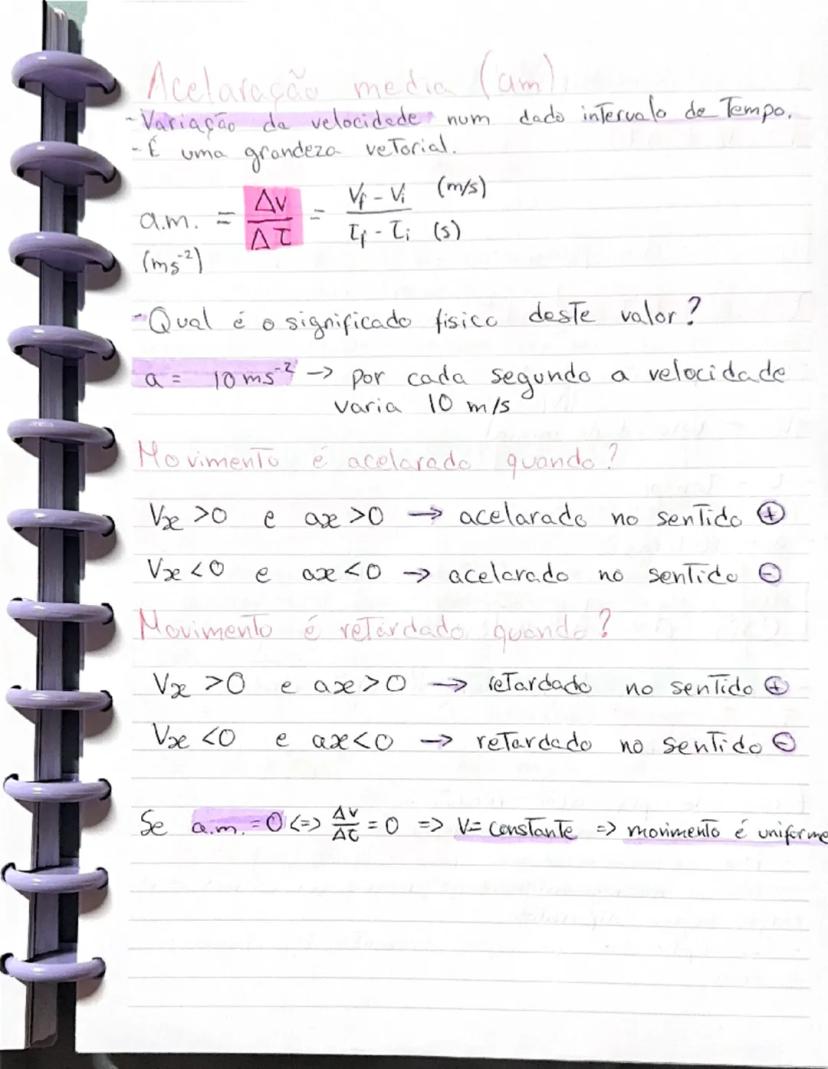 Acelaração media (am)
- Variação da velocidade num dado intervalo de Tempo.
- É uma grandeza vetorial.
a.m. = Δv/Δt = (Vf - Vi)/(tf - ti) (m/s)/(s)
(ms⁻²)
- Qual é o significado fisico deste valor?
a = 10 ms⁻² → por cada segundo a velocidade
varia 10 m/s
Movimento é acelarado quando?
Vx >0 e ax >0 → acelarado no sentido ⊕
Vx <0 e ax <0 → acelarado no sentido ⊖
Movimento é retardado quando?
Vx >0 e ax >0 → retardado no sentido ⊕
Vx <0 e ax<0 → retardado no sentido ⊖
Se a.m. = 0 <=> Δv/Δt = 0 => V= constante => movimento é uniforme